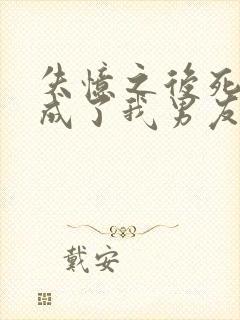 失憶之後死
成了我男友
戴安